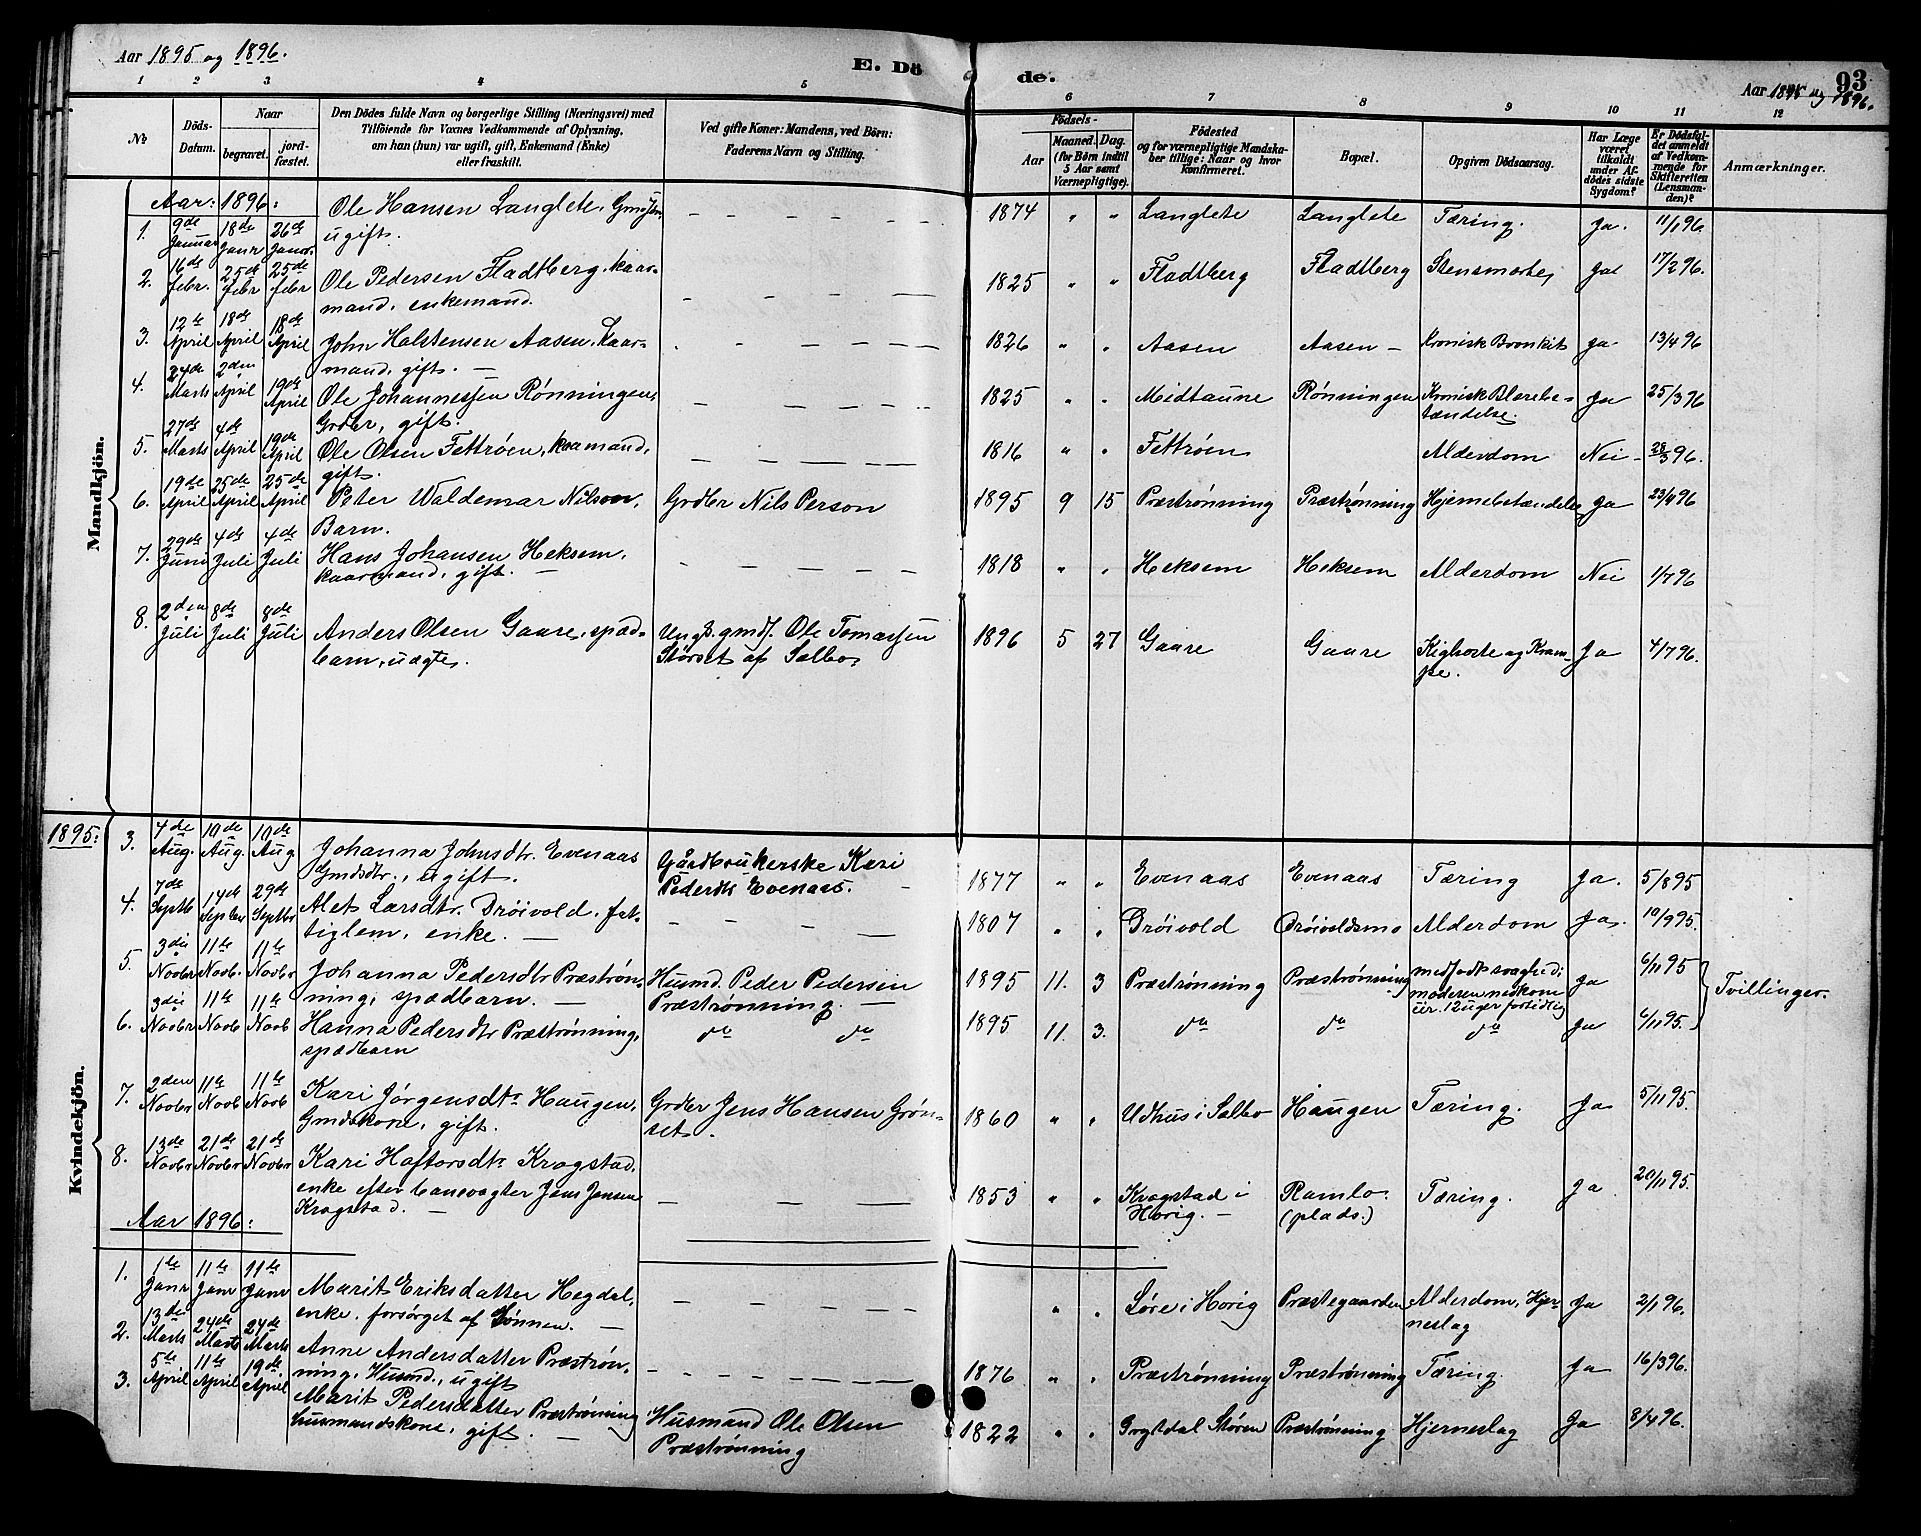 Aar 1895 og 1896.
E. Döde.
93
Aar 1895 og 1896.
1 2 3 4 5 6 7 8 9 10 11 12
No
Döds-Datum.
Naar
begravet.
jord-fæstet.
Den Dödes fulde Navn og borgerlige Stilling (Næringsvei) med
Tilföiende for Voxnes Vedkommende af Oplysning,
om han (hun) var ugift, gift, Enkemand (Enke)
eller fraskilt.
Ved gifte Koner: Mandens, ved Börn:
Faderens Navn og Stilling.
Födsels-
Aar
Maaned. Dag.
(for Börn indtil
5 Aar samt
Værnepligtige).
Födested
og for værnepligtige Mandska-
ber tillige: Naar og hvor
konfirmeret.
Bopæl.
Opgiven Dödsaarsag.
Har Læge
været
tilkaldt
under Af-
dödes sidste
Sygdom?
Er Dödsfal-
det anmeldt
af Vedkom-
mende for
Skifteretten
(Lensman-
den)?
Anmærkninger.
Mandkjön.
Aar: 1896:
1. 9de Januar 18de Janr 26de Janr. Ole Hansen Langlete, Gmdssøn, ugift. 1874 " " Langlete Langlete Tæring. Ja. 11/1 96.
2. 16de Febr. 25de Febr 25de Febr Ole Pedersen Fladtberg, kaar-
mand, enkemand. 1825 " " Fladtberg Fladtberg Stensmerter Ja 17/2 96.
3. 12te April 18de April 18de April John Halstensen Aasen, Kaar-
mand, gift. — 1826 " " Aasen Aasen — Kronisk Bronkit Ja 13/4 96
4. 24de Marts 2den April 19de April Ole Johannessen Rønningen,
Grder, gift. 1825 " " Midtaune Rønningen Kronisk Blærebe-
tændelse. Ja 25/3 96
5. 27de Marts 4de April 19de April Ole Olsen Fettrøen, kaarmand,
gift. 1816 " " Fettrøen Alderdom Nei - 28/3 96.
6. 19de April 25de April 25de April Peter Waldemar Nilson,
Barn. Grder Nils Person 1895 9 15 Præstrønning Præstrønning Hjernebetændelse Ja 23/4 96
7. 29de Juni 4de Juli 4de Juli Hans Johansen Heksem,
kaarmand, gift. — 1818 " " Heksem Heksem Alderdom Nei 1/7 96
8. 2den Juli 8de Juli 8de Juli Anders Olsen Gaare, spæd-
barn, uægte. Ungk. gmds. Ole Tomassen
Størset af Selbo. 1896 5 27 Gaare Gaare Kighoste og Kram-
pe. Ja 4/7 96.
Kvindekjön.
1895:
3. 4de Aug. 10de Aug. 10de Aug Johanna Johnsdtr. Evenaas
Gmdsdtr., ugift. Gårdbrukerske Kari
Pedersdtr Evenaas. 1877 " " Evenaas Evenaas Tæring Ja. 5/8 95
4. 7de Septb 14de Septbr 29de Septbr Alet Larsdtr. Drøivold, fat-
tiglem, enke. — 1807 " " Grøivold Drøivoldsmo Alderdom Ja. 10/9 95.
5. 3die Novbr 11te Novbr. 11te Novbr Johanna Pedersdtr Præstrøn-
ning, spædbarn. — Husmd. Peder Pedersen
Præstrønning. — 1895 11. 3 Præstrønning Præstrønning medfødt svaghed;
moderen nedkom
cir. 12 uger fortidlig Ja 6/11 95 Tvillinger.
6. 3die Novbr 11te Novbr 11te Novb Hanna Pedersdtr Præstrønning,
spædbarn do do 1895 11. 3. do do do Ja 6/11 95.
7. 2den Novbr 11te Novb 11te Novb Kari Jørgensdtr Haugen,
Gmdskone, gift. Grder Jens Hansen Grøn-
set. 1860 " " Udhus i Selbo Haugen Tæring. Ja 5/11 95.
8. 13de Novbr 21de Novbr 21de Novbr Kari Haftorsdtr Kragstad,
enke efter banevogter Jens Jensen
Kragstad. — 1853 " " Kragstad i
Horig. — Ramlo
(plads.) Tæring. Ja. 20/11 95.
Aar 1896:
1. 1te Janr 11te Janr 11te Janr Marit Eriksdatter Hegdal,
enke, forsørget af Sønnen. — " " Løre i Horig Præstegaarden Alderdom, Hjer-
neslag Ja 2/1 96.
2. 13de Marts 24de Marts 24de Marts Anne Andersdatter Præstrøn-
ning, Husmd., ugift 1876 " " Præstrønning Præstrønning Tæring. Ja 16/3 96.
3. 5te April 11te April 19de April Marit Pedersdatter Præstrønning
husmandskone, gift. — Husmand Ole Olsen
Præstrønning 1822 " " Grytdal Støren Præstrønning Hjerneslag Ja 8/4 96.